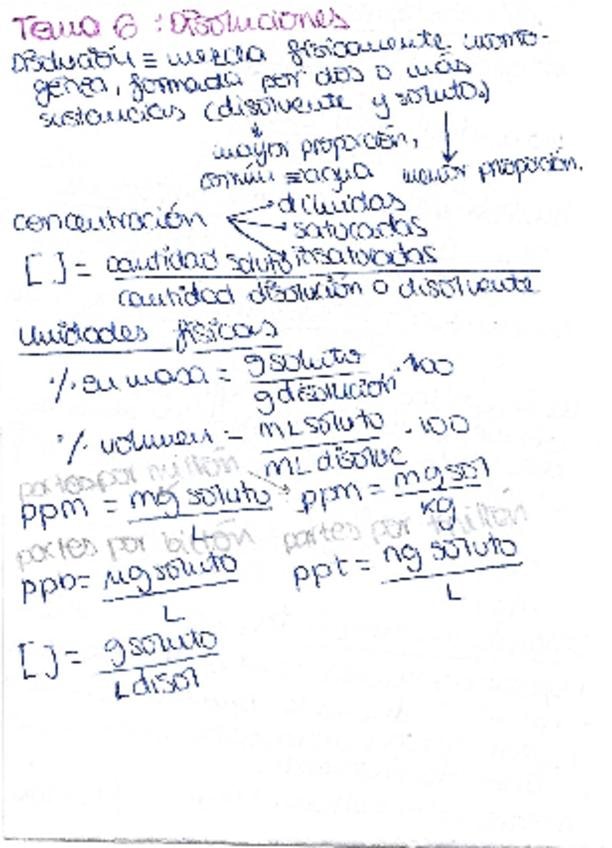 Tema 6: Disoluciones
Disolución ≡ mezcla físicamente homo-
génea, formada por dos o más
sustancias (disolvente y soluto)
mayor proporción,
común ≡ agua menor proporción.
concentración → diluidas
→ saturadas
insaturadas
[ ] = cantidad soluto
cantidad disolución o disolvente
Unidades físicas
% en masa = g soluto / g disolución · 100
% volumen = mL soluto / mL disoluc · 100
partes por millón
ppm = mg soluto / L → ppm = mg sol / kg
partes por billón partes por trillón
ppb = μg soluto / L ppt = ng soluto / L
[ ] = g soluto / L disol